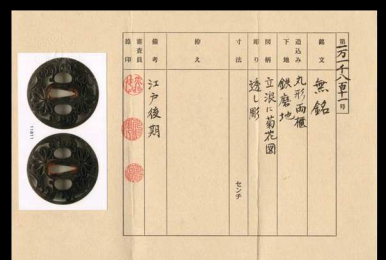 第一万一千八百十一号
銘文 無銘
造込み 丸形両櫃
下地 鉄磨地
図柄 立浪に菊花図
彫り 透し彫
寸法 センチ
拵え
備考 江戸後期
審査員
捺印
11811